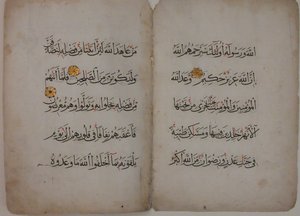 الله ورسوله أولئك سيرحمهم الله
إن الله عزيز حكيم وعد الله
المؤمنين والمؤمنات جنات تجري من تحتها
الأنهار خالدين فيها ومساكن طيبة
في جنات عدن ورضوان من الله أكبر
من عاهد الله لئن آتانا من فضله لنصدقن
ولنكونن من الصالحين فلما آتاهم
من فضله بخلوا به وتولوا وهم معرضون
فأعقبهم نفاقا في قلوبهم إلى يوم
يلقونه بما أخلفوا الله ما وعدوه